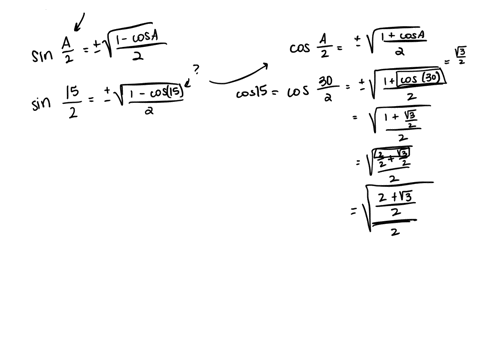 sin A/2 = ± √((1 - cos A)/2)
sin 15/2 = ± √((1 - cos(15))/2)
?
cos A/2 = ± √((1 + cos A)/2)
cos15 = cos 30/2 = ± √((1 + cos(30))/2)
= √3/2
= √((1 + √3/2)/2)
= √((2/2 + √3/2)/2)
= √(((2 + √3)/2)/2)